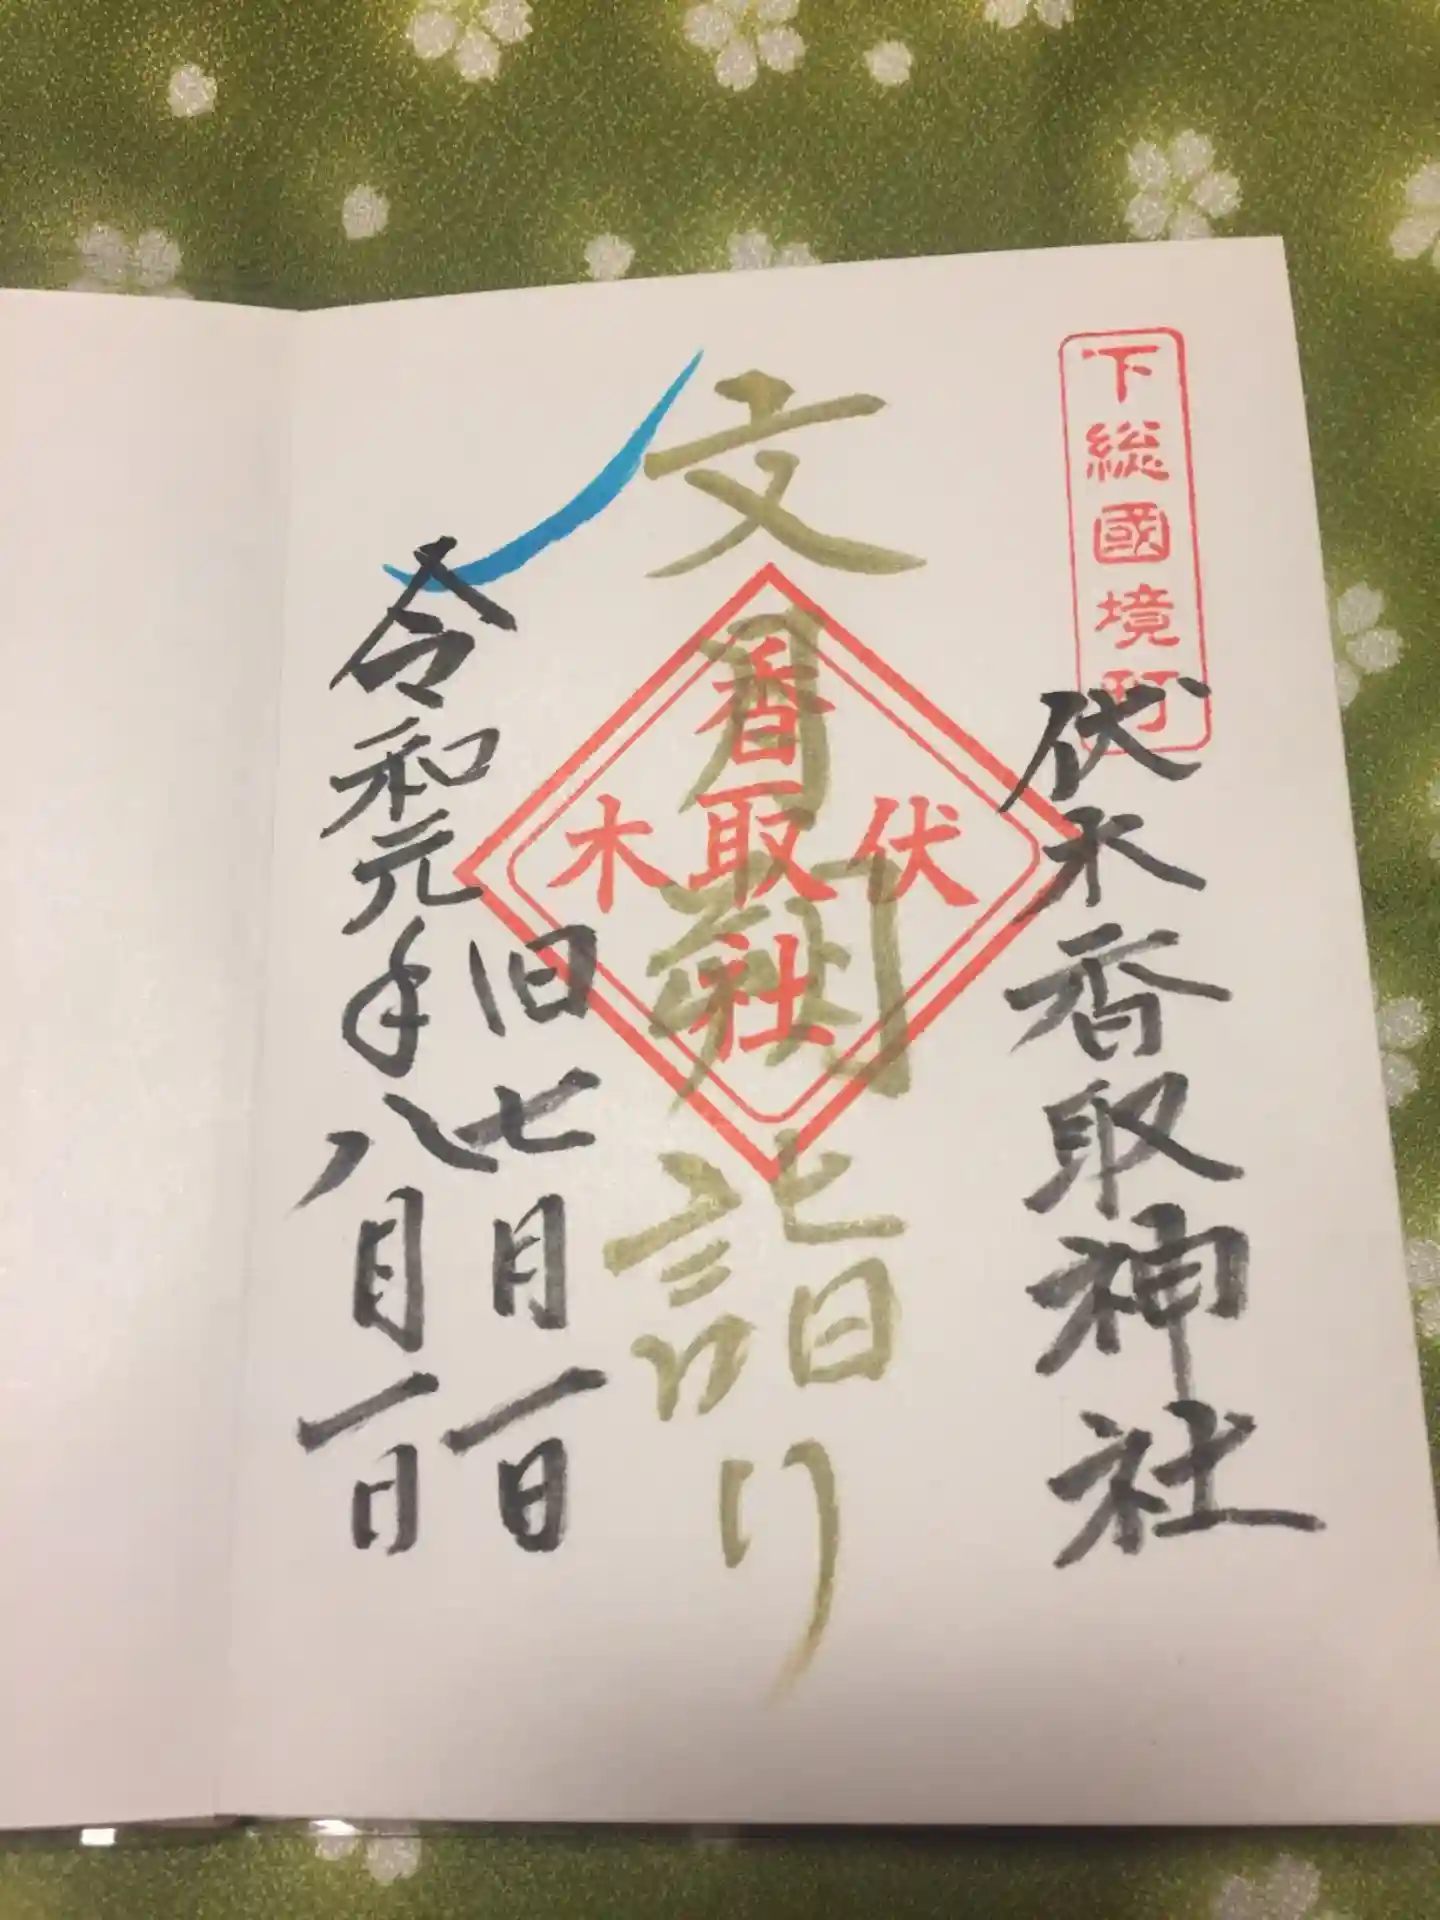 下総國境町
伏木香取神社
文月朔詣り
伏木香取社
旧七月一日
令和元年八月一日